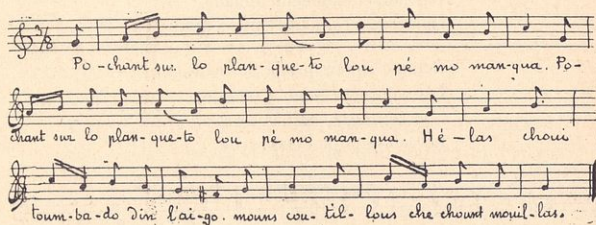 3/8
Po-chant sur lo plan-que-to lou pé mo man-qua. Po-
chant sur lo plan-que-to lou pé mo man-qua. Hé-las choui
toum-ba-do din l'ai-go. mouns cou-til-lous che chount mouil-las.